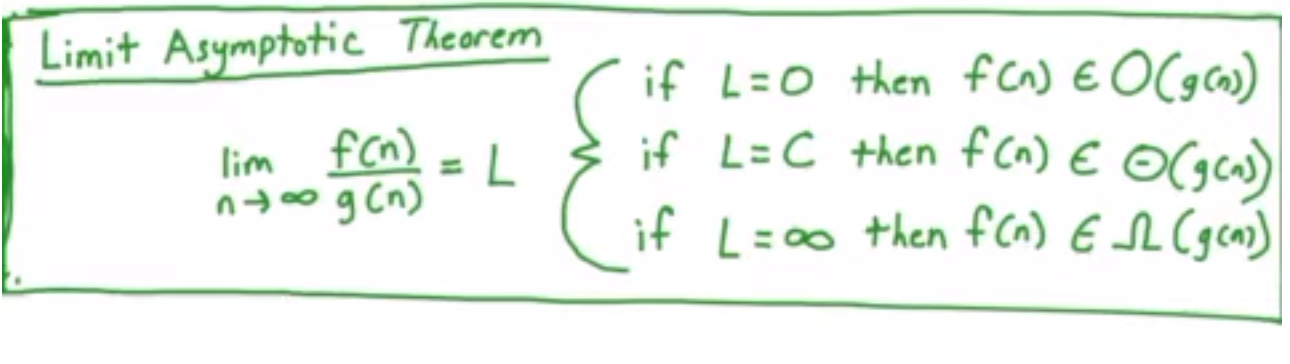 Limit Asymptotic Theorem
lim n→∞ f(n)/g(n) = L
if L=0 then f(n) ∈ O(g(n))
if L=C then f(n) ∈ Θ(g(n))
if L=∞ then f(n) ∈ Ω(g(n))